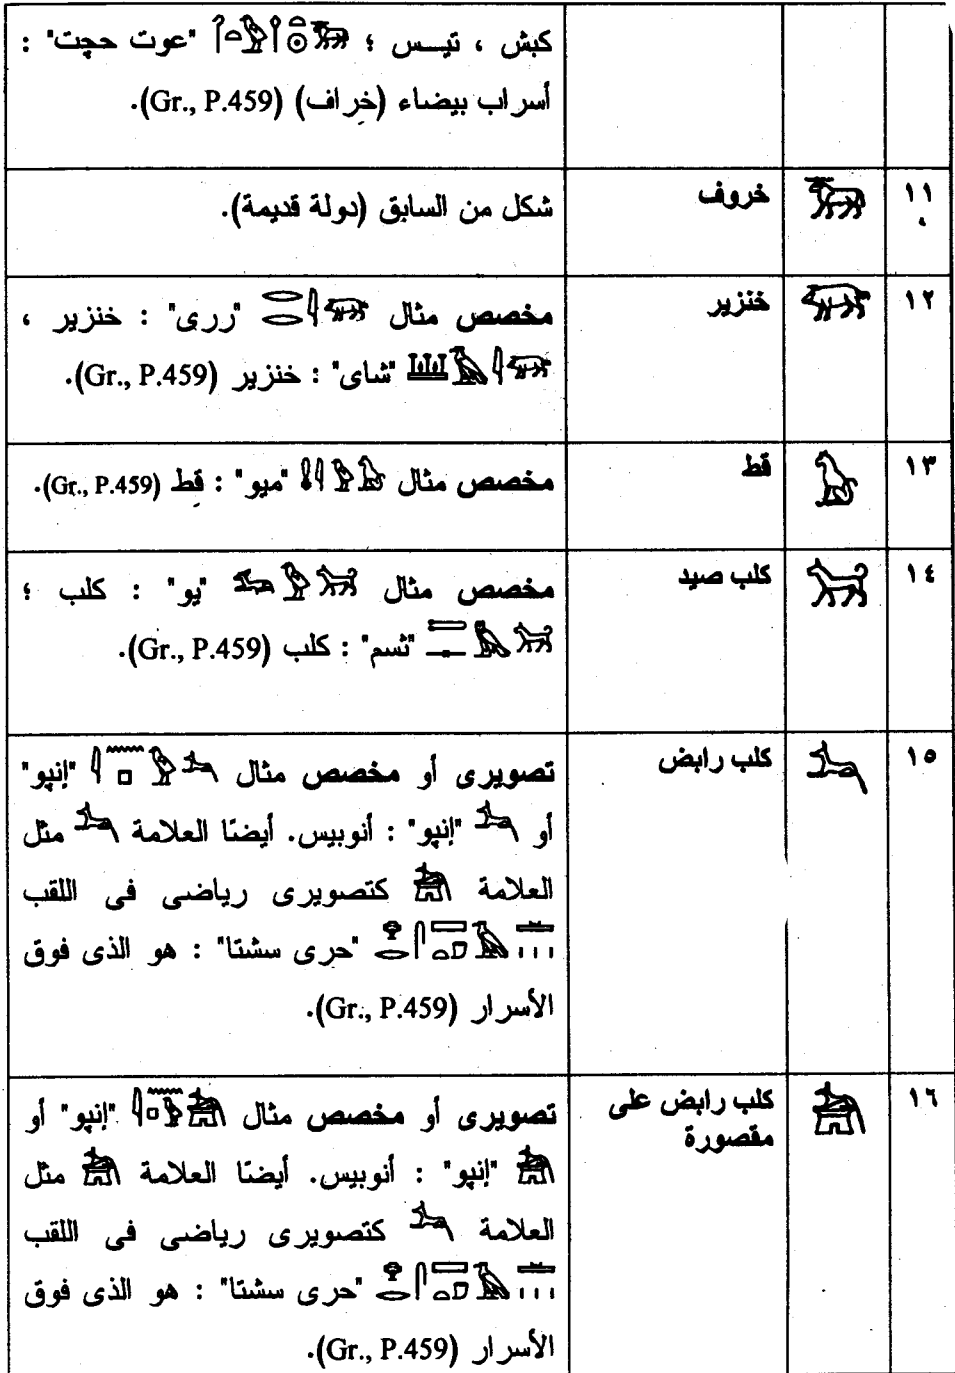 كبش ، تيس ؛ 𓃝𓏤𓇳𓌉𓅱𓏏𓋾 "عوت حجت" :
أسراب بيضاء (خراف) (Gr., P.459).
١١، خروف شكل من السابق (دولة قديمة).
١٢ 𓃟 خنزير مخصص مثال 𓃟𓇋𓂋𓂋 "ررى" : خنزير ،
𓃟𓇋𓄿𓆷 "شاى" : خنزير (Gr., P.459).
١٣ 𓃠 قط مخصص مثال 𓃠𓅱𓇋𓏇 "ميو" : قط (Gr., P.459).
١٤ 𓃡 كلب صيد مخصص مثال 𓃡𓅱𓃛 "يو" : كلب ؛
𓃡𓅓𓊃𓍿 "ثسم" : كلب (Gr., P.459).
١٥ 𓃢 كلب رابض تصويرى أو مخصص مثال 𓃢𓅱𓊪𓈖𓇋 "إنپو"
أو 𓃢 "إنپو" : أنوبيس. أيضًا العلامة 𓃢 مثل
العلامة 𓃣 كتصويرى رياضى فى اللقب
𓏛𓏥𓄿𓈙𓏏𓋴𓂋𓁷 "حرى سشتا" : هو الذى فوق
الأسرار (Gr., P.459).
١٦ 𓃣 كلب رابض على
مقصورة
تصويرى أو مخصص مثال 𓃣𓅱𓊪𓈖𓇋 "إنپو" أو
𓃣 "إنپو" : أنوبيس. أيضًا العلامة 𓃣 مثل
العلامة 𓃢 كتصويرى رياضى فى اللقب
𓏛𓏥𓄿𓈙𓏏𓋴𓂋𓁷 "حرى سشتا" : هو الذى فوق
الأسرار (Gr., P.459).